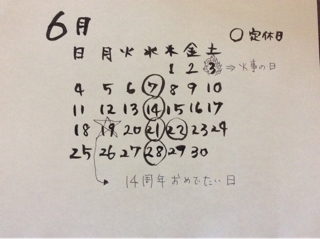 6月
○定休日
日 月 火 水 木 金 土
1 2 3 ⇒火事の日
4 5 6 7 8 9 10
11 12 13 14 15 16 17
18 19 20 21 22 23 24
25 26 27 28 29 30
14周年おめでたい日